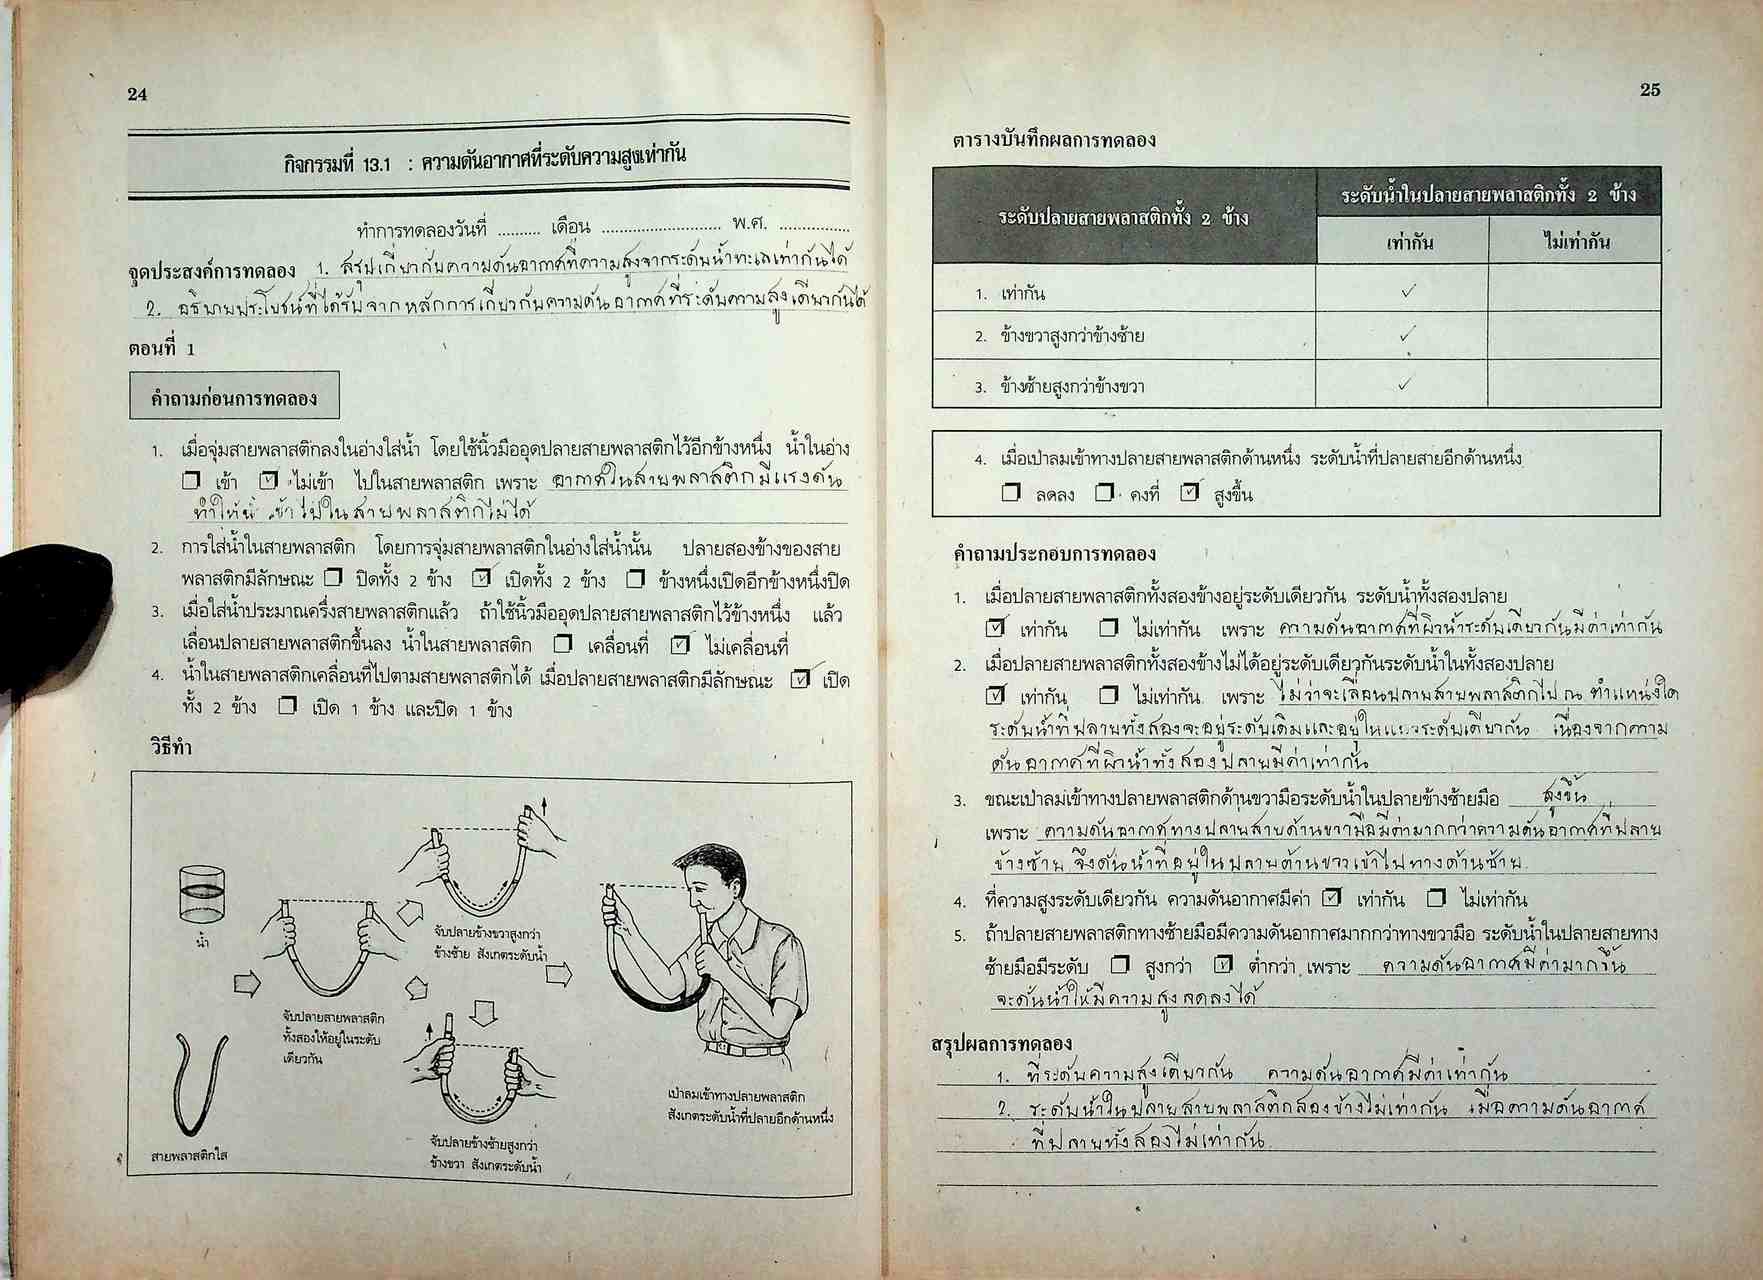 24
กิจกรรมที่ 13.1 : ความดันอากาศที่ระดับความสูงเท่ากัน
ทำการทดลองวันที่ .......... เดือน .......................... พ.ศ. ...............
จุดประสงค์การทดลอง 1. สรุปเกี่ยวกับความดันอากาศที่ความสูงจากระดับน้ำทะเลเท่ากันได้
2. อธิบายประโยชน์ที่ได้รับจากหลักการเกี่ยวกับความดันอากาศที่ระดับความสูงเดียวกันได้
ตอนที่ 1
คำถามก่อนการทดลอง
1. เมื่อจุ่มสายพลาสติกลงในอ่างใส่น้ำ โดยใช้นิ้วมืออุดปลายสายพลาสติกไว้อีกข้างหนึ่ง น้ำในอ่าง
☐ เข้า ☑ ไม่เข้า ไปในสายพลาสติก เพราะ อากาศในสายพลาสติกมีแรงดัน
ทำให้น้ำเข้าไปในสายพลาสติกไม่ได้
2. การใส่น้ำในสายพลาสติก โดยการจุ่มสายพลาสติกในอ่างใส่น้ำนั้น ปลายสองข้างของสาย
พลาสติกมีลักษณะ ☐ ปิดทั้ง 2 ข้าง ☑ เปิดทั้ง 2 ข้าง ☐ ข้างหนึ่งเปิดอีกข้างหนึ่งปิด
3. เมื่อใส่น้ำประมาณครึ่งสายพลาสติกแล้ว ถ้าใช้นิ้วมืออุดปลายสายพลาสติกไว้ข้างหนึ่ง แล้ว
เลื่อนปลายสายพลาสติกขึ้นลง น้ำในสายพลาสติก ☐ เคลื่อนที่ ☑ ไม่เคลื่อนที่
4. น้ำในสายพลาสติกเคลื่อนที่ไปตามสายพลาสติกได้ เมื่อปลายสายพลาสติกมีลักษณะ ☑ เปิด
ทั้ง 2 ข้าง ☐ เปิด 1 ข้าง และปิด 1 ข้าง
วิธีทำ
น้ำ
สายพลาสติกใส
จับปลายสายพลาสติก
ทั้งสองให้อยู่ในระดับ
เดียวกัน
จับปลายข้างขวาสูงกว่า
ข้างซ้าย สังเกตระดับน้ำ
จับปลายข้างซ้ายสูงกว่า
ข้างขวา สังเกตระดับน้ำ
เป่าลมเข้าทางปลายพลาสติก
สังเกตระดับน้ำที่ปลายอีกด้านหนึ่ง
25
ตารางบันทึกผลการทดลอง
ระดับปลายสายพลาสติกทั้ง 2 ข้าง
ระดับน้ำในปลายสายพลาสติกทั้ง 2 ข้าง
เท่ากัน ไม่เท่ากัน
1. เท่ากัน ✓
2. ข้างขวาสูงกว่าข้างซ้าย ✓
3. ข้างซ้ายสูงกว่าข้างขวา ✓
4. เมื่อเป่าลมเข้าทางปลายสายพลาสติกด้านหนึ่ง ระดับน้ำที่ปลายสายอีกด้านหนึ่ง
☐ ลดลง ☐ คงที่ ☑ สูงขึ้น
คำถามประกอบการทดลอง
1. เมื่อปลายสายพลาสติกทั้งสองข้างอยู่ระดับเดียวกัน ระดับน้ำทั้งสองปลาย
☑ เท่ากัน ☐ ไม่เท่ากัน เพราะ ความดันอากาศที่ผิวน้ำระดับเดียวกันมีค่าเท่ากัน
2. เมื่อปลายสายพลาสติกทั้งสองข้างไม่ได้อยู่ระดับเดียวกันระดับน้ำในทั้งสองปลาย
☑ เท่ากัน ☐ ไม่เท่ากัน เพราะ ไม่ว่าจะเลื่อนปลายสายพลาสติกไป ณ ตำแหน่งใด
ระดับน้ำที่ปลายทั้งสองจะอยู่ระดับเดิมและอยู่ในแนวระดับเดียวกัน เนื่องจากความ
ดันอากาศที่ผิวน้ำทั้งสองปลายมีค่าเท่ากัน
3. ขณะเป่าลมเข้าทางปลายพลาสติกด้านขวามือระดับน้ำในปลายข้างซ้ายมือ สูงขึ้น
เพราะ ความดันอากาศทางปลายสายด้านขวามือมีค่ามากกว่าความดันอากาศที่ปลาย
ข้างซ้าย จึงดันน้ำที่อยู่ในปลายด้านขวาเข้าไปทางด้านซ้าย
4. ที่ความสูงระดับเดียวกัน ความดันอากาศมีค่า ☑ เท่ากัน ☐ ไม่เท่ากัน
5. ถ้าปลายสายพลาสติกทางซ้ายมือมีความดันอากาศมากกว่าทางขวามือ ระดับน้ำในปลายสายทาง
ซ้ายมือมีระดับ ☐ สูงกว่า ☑ ต่ำกว่า เพราะ ความดันอากาศมีค่ามากขึ้น
จะดันน้ำให้มีความสูงลดลงได้
สรุปผลการทดลอง
1. ที่ระดับความสูงเดียวกัน ความดันอากาศมีค่าเท่ากัน
2. ระดับน้ำในปลายสายพลาสติกสองข้างไม่เท่ากัน เมื่อความดันอากาศ
ที่ปลายทั้งสองไม่เท่ากัน